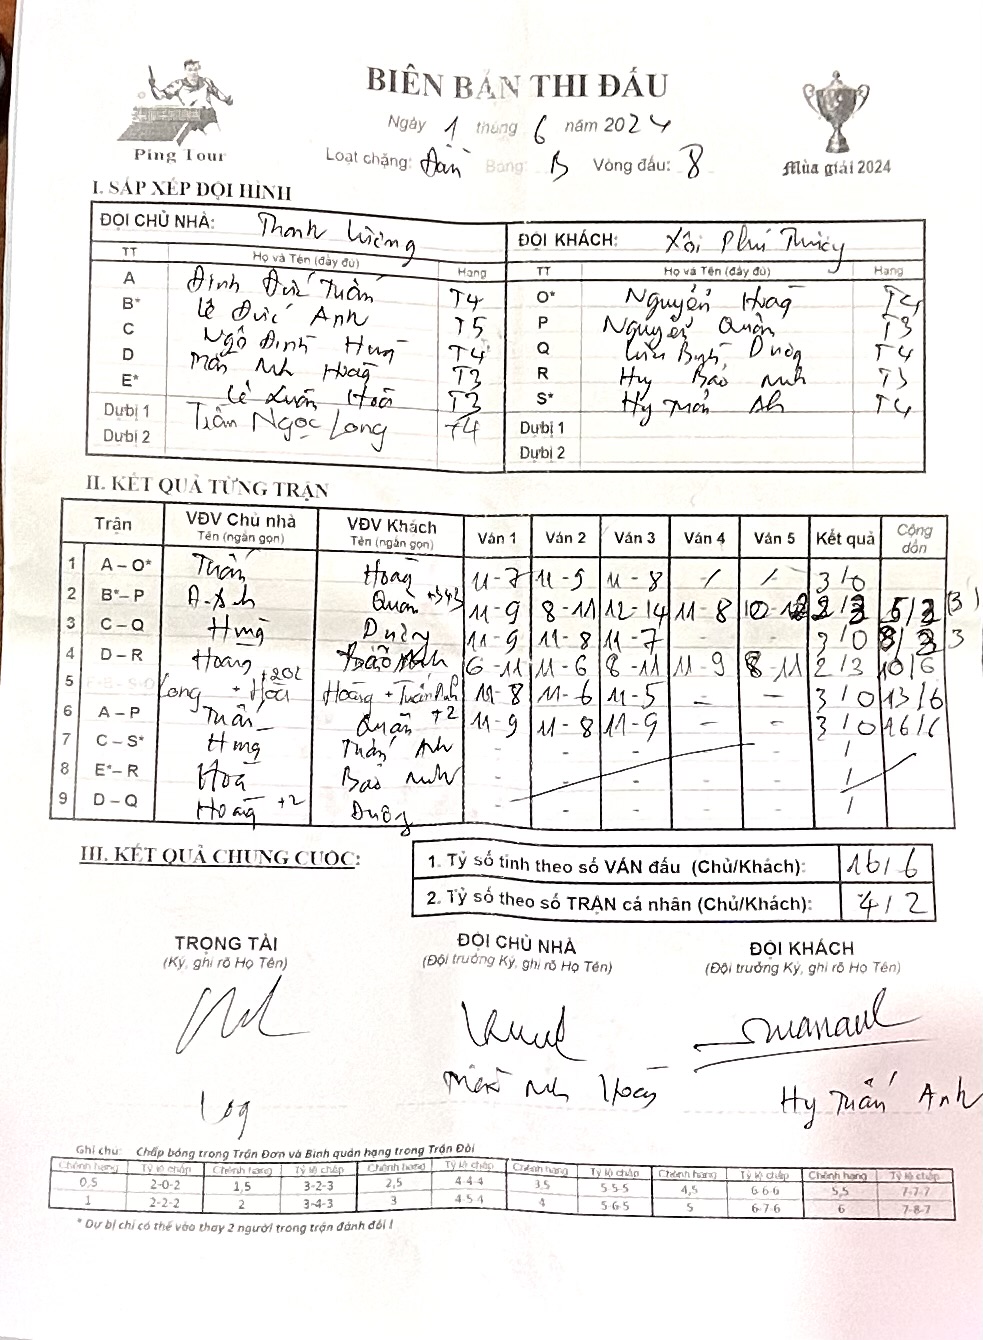 BIÊN BẢN THI ĐẤU
Ngày 1 tháng 6 năm 2024
Ping Tour
Loạt chặng: Đôi Bảng: B Vòng đấu: 8
Mùa giải 2024
I. SẮP XẾP ĐỘI HÌNH
ĐỘI CHỦ NHÀ: Thanh Lương ĐỘI KHÁCH: Xôi Phú Thượng
TT Họ và Tên (đầy đủ) Hạng TT Họ và Tên (đầy đủ) Hạng
A Đinh Đức Tuấn T4 O* Nguyễn Hoàng T4
B* Lê Đức Anh T5 P Nguyễn Quân T3
C Ngô Đình Hưng T4 Q Bình Dương T4
D Trần Anh Hoàng T3 R Hy Bảo Anh T3
E* Lê Xuân Hoà T3 S* Hy Tuấn Anh T4
Dự bị 1 Trần Ngọc Long T4 Dự bị 1
Dự bị 2 Dự bị 2
II. KẾT QUẢ TỪNG TRẬN
Trận VĐV Chủ nhà Tên (ngắn gọn) VĐV Khách Tên (ngắn gọn) Ván 1 Ván 2 Ván 3 Ván 4 Ván 5 Kết quả Cộng dồn
1 A – O* Tuấn Hoàng 11-7 11-5 11-8 - - 3/0
2 B* – P Đ.Anh Quân +343 11-9 8-11 12-14 11-8 10-12 2/3 5/3 (3)
3 C – Q Hưng Dương 11-9 11-8 11-7 - - 3/0 8/3 3
4 D – R Hoàng Bảo Anh 6-11 11-6 8-11 11-9 8-11 2/3 10/6
5 Long + Hoà +202 Hoàng + Tuấn Anh 11-8 11-6 11-5 - - 3/0 13/6
6 A – P Tuấn Quân +2 11-9 11-8 11-9 - - 3/0 16/6
7 C – S* Hưng Tuấn Anh - - - - - /
8 E* – R Hoà Bảo Anh - - - - - /
9 D – Q Hoàng +2 Dương - - - - - /
III. KẾT QUẢ CHUNG CUỘC:
1. Tỷ số tính theo số VÁN đấu (Chủ/Khách): 16/6
2. Tỷ số theo số TRẬN cá nhân (Chủ/Khách): 4/2
TRỌNG TÀI ĐỘI CHỦ NHÀ ĐỘI KHÁCH
(Ký, ghi rõ Họ Tên) (Đội trưởng Ký, ghi rõ Họ Tên) (Đội trưởng Ký, ghi rõ Họ Tên)
Long Trần Anh Hoàng Hy Tuấn Anh
Ghi chú: Chấp bóng trong Trận Đơn và Bình quân hạng trong Trận Đôi
Chênh hạng Tỷ lệ chấp Chênh hạng Tỷ lệ chấp Chênh hạng Tỷ lệ chấp Chênh hạng Tỷ lệ chấp Chênh hạng Tỷ lệ chấp Chênh hạng Tỷ lệ chấp
0,5 2-0-2 1,5 3-2-3 2,5 4-4-4 3,5 5-5-5 4,5 6-6-6 5,5 7-7-7
1 2-2-2 2 3-4-3 3 4-5-4 4 5-6-5 5 6-7-6 6 7-8-7
* Dự bị chỉ có thể vào thay 2 người trong trận đánh đôi !